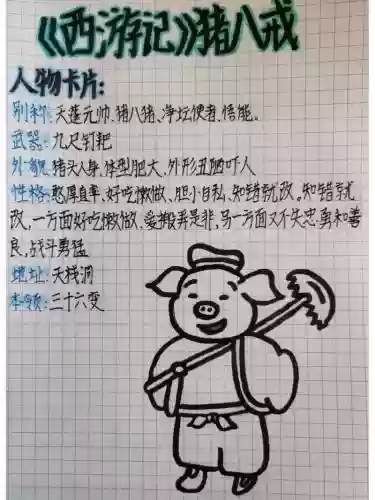 《西游记》猪八戒
人物卡片:
别称:天蓬元帅、猪八猪、净坛使者、悟能。
武器:九尺钉耙
外貌:猪头人身、体型肥大、外形丑陋吓人
性格:憨厚直率、好吃懒做、胆小自私、知错就改。知错就
改,一方面好吃懒做、爱搬弄是非,另一方面又不失忠勇和善
良,战斗勇猛
地址:天栈洞
本领:三十六变